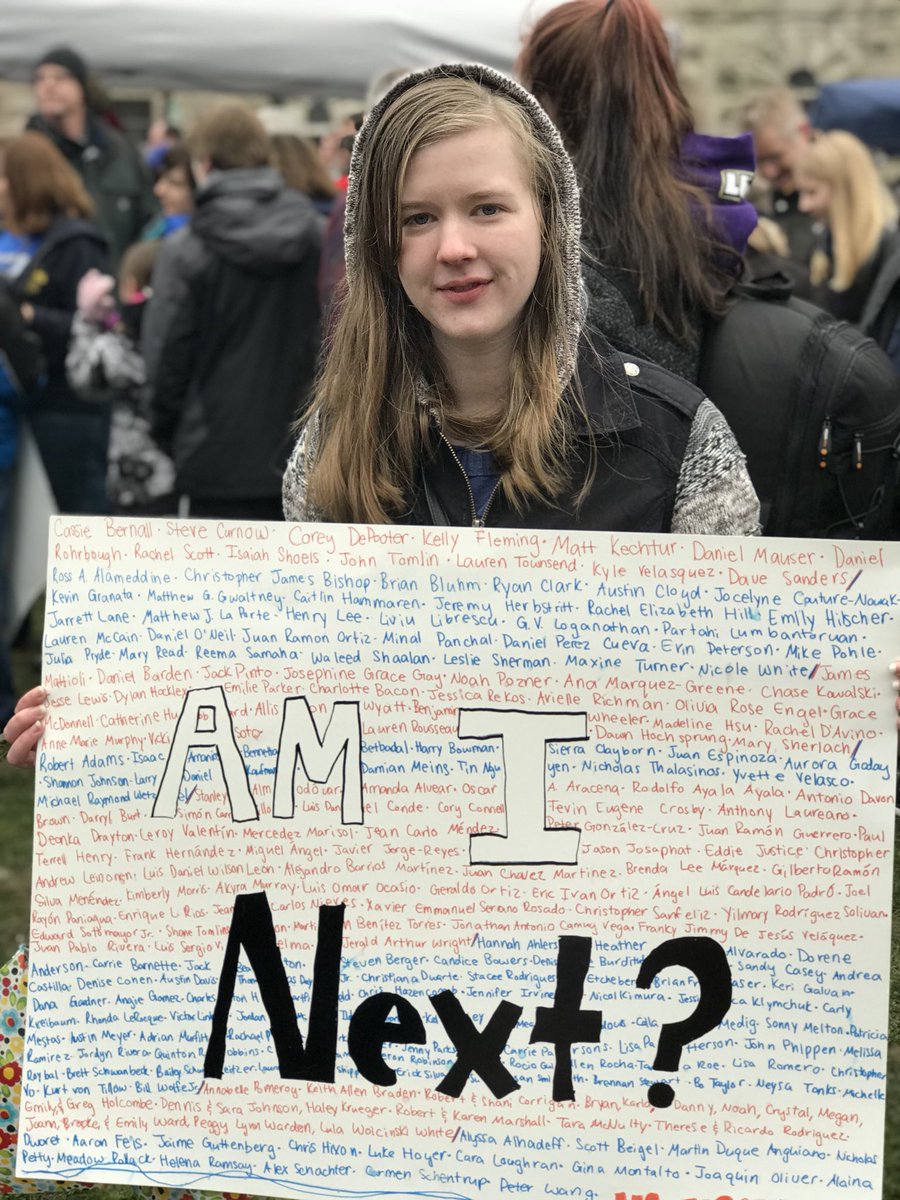 Cassie Bernall · Steve Curnow · Corey DePooter · Kelly Fleming · Matt Kechtur · Daniel Mauser · Daniel
Rohrbough · Rachel Scott · Isaiah Shoels · John Tomlin · Lauren Townsend · Kyle Velasquez · Dave Sanders/
Ross A. Alameddine · Christopher James Bishop · Brian Bluhm · Ryan Clark · Austin Cloyd · Jocelyne Couture-Nowak ·
Kevin Granata · Matthew G. Gwaltney · Caitlin Hammaren · Jeremy Herbstritt · Rachel Elizabeth Hill · Emily Hilscher ·
Jarrett Lane · Matthew J. La Porte · Henry Lee · Liviu Librescu · G.V. Loganathan · Partahi Lumbantoruan ·
Lauren McCain · Daniel O'Neil · Juan Ramon Ortiz · Minal Panchal · Daniel Perez Cueva · Erin Peterson · Mike Pohle ·
Julia Pryde · Mary Read · Reema Samaha · Waleed Shaalan · Leslie Sherman · Maxine Turner · Nicole White/James
Mattioli · Daniel Barden · Jack Pinto · Josephine Grace Gay · Noah Pozner · Ana Marquez-Greene · Chase Kowalski ·
Jesse Lewis · Dylan Hockley · Emilie Parker · Charlotte Bacon · Jessica Rekos · Avielle Richman · Olivia Rose Engel · Grace
McDonnell · Catherine Wyatt · Benjamin Wheeler · Madeline Hsu · Rachel D'Avino ·
Anne Marie Murphy · Vicki Soto · Lauren Rousseau Dawn Hochsprung · Mary Sherlach/
Robert Adams · Isaac Bennetta Betbadal · Harry Bowman · Sierra Clayborn · Juan Espinoza · Aurora Goday
Shannon Johnson · Larry Daniel Kaufman Damian Meins · Tin Nguyen · Nicholas Thalasinos · Yvette Velasco ·
Michael Raymond Wetzel/Stanley Amanda Alvear · Oscar A. Aracena · Rodolfo Ayala Ayala · Antonio Davon
Brown · Darryl Burt Simón Conde · Cory Connell Tevin Eugene Crosby · Anthony Laureano ·
Deonka Drayton · Leroy Valentín · Mercedez Marisol · Jean Carlo Méndez Peter González-Cruz · Juan Ramón Guerrero · Paul
Terrell Henry · Frank Hernández · Miguel Angel · Javier Jorge-Reyes · Jason Josaphat · Eddie Justice · Christopher
Andrew Leinonen · Luis Daniel Wilson Leon · Alejandro Barrios Martinez · Juan Chavez Martinez · Brenda Lee Márquez · Gilberto Ramón
Silva Menéndez · Kimberly Morris · Akyra Murray · Luis Omar Ocasio · Geraldo Ortiz · Eric Ivan Ortiz · Ángel Luis Candelario Padró · Joel
Rayón Paniagua · Enrique L. Rios · Jean Carlos Nieves · Xavier Emmanuel Serrano Rosado · Christopher Sanfeliz · Yilmary Rodríguez Solivan ·
Edward Sotomayor Jr. · Shane Tomlinson Benítez Torres · Jonathan Antonio Camuy Vega · Franky Jimmy De Jesús Velázquez ·
Juan Pablo Rivera · Luis Sergio Jerald Arthur Wright/Hannah Ahlers Heather Alvarado · Dorene
Anderson · Carrie Barnette · Jack Steven Berger · Candice Bowers · Denise Sandy Casey · Andrea
Castilla · Denise Cohen · Austin Davis · Thomas Day Jr. · Christiana Duarte · Stacee Rodrigues Etcheber · Brian Fraser · Keri Galvan
Dana Gardner · Angie Gomez · Charles Chris Hazencomb · Jennifer Irvine Nicol Kimura · Klymchuk · Carly
Kreibaum · Rhonda LeRocque · Victor Link · Jordan Medig · Sonny Melton · Patricia
Mestas · Austin Meyer · Adrian Murfitt · Rachael Jenny Parks Carrie Parsons · Lisa Patterson · John Phippen · Melissa
Ramirez · Jordyn Rivera · Quinton Robbins · Cameron Robinson · Rocio Guillen Rocha · Tara Roe · Lisa Romero · Christopher
Roybal · Brett Schwanbeck · Bailey Schweitzer · Erick Silva · Susan Smith · Brennan Stewart · Bo Taylor · Neysa Tonks · Michelle
Vo · Kurt von Tillow · Bill Wolfe Jr./Annabelle Pomeroy · Keith Allen Braden · Robert & Shani Corrigan · Bryan, Karla, Danny, Noah, Crystal, Megan,
Emily & Greg Holcombe · Dennis & Sara Johnson, Haley Krueger · Robert & Karen Marshall · Tara McNulty · Therese & Ricardo Rodriguez ·
Joann, Brooke, & Emily Ward, Peggy Lynn Warden, Lula Woicinski White/Alyssa Alhadeff · Scott Beigel · Martin Duque Anguiano · Nicholas
Dworet · Aaron Feis · Jaime Guttenberg · Chris Hixon · Luke Hoyer · Cara Loughran · Gina Montalto · Joaquin Oliver · Alaina
Petty · Meadow Pollack · Helena Ramsay · Alex Schachter · Carmen Schentrup Peter Wang ·
AM I
Next?